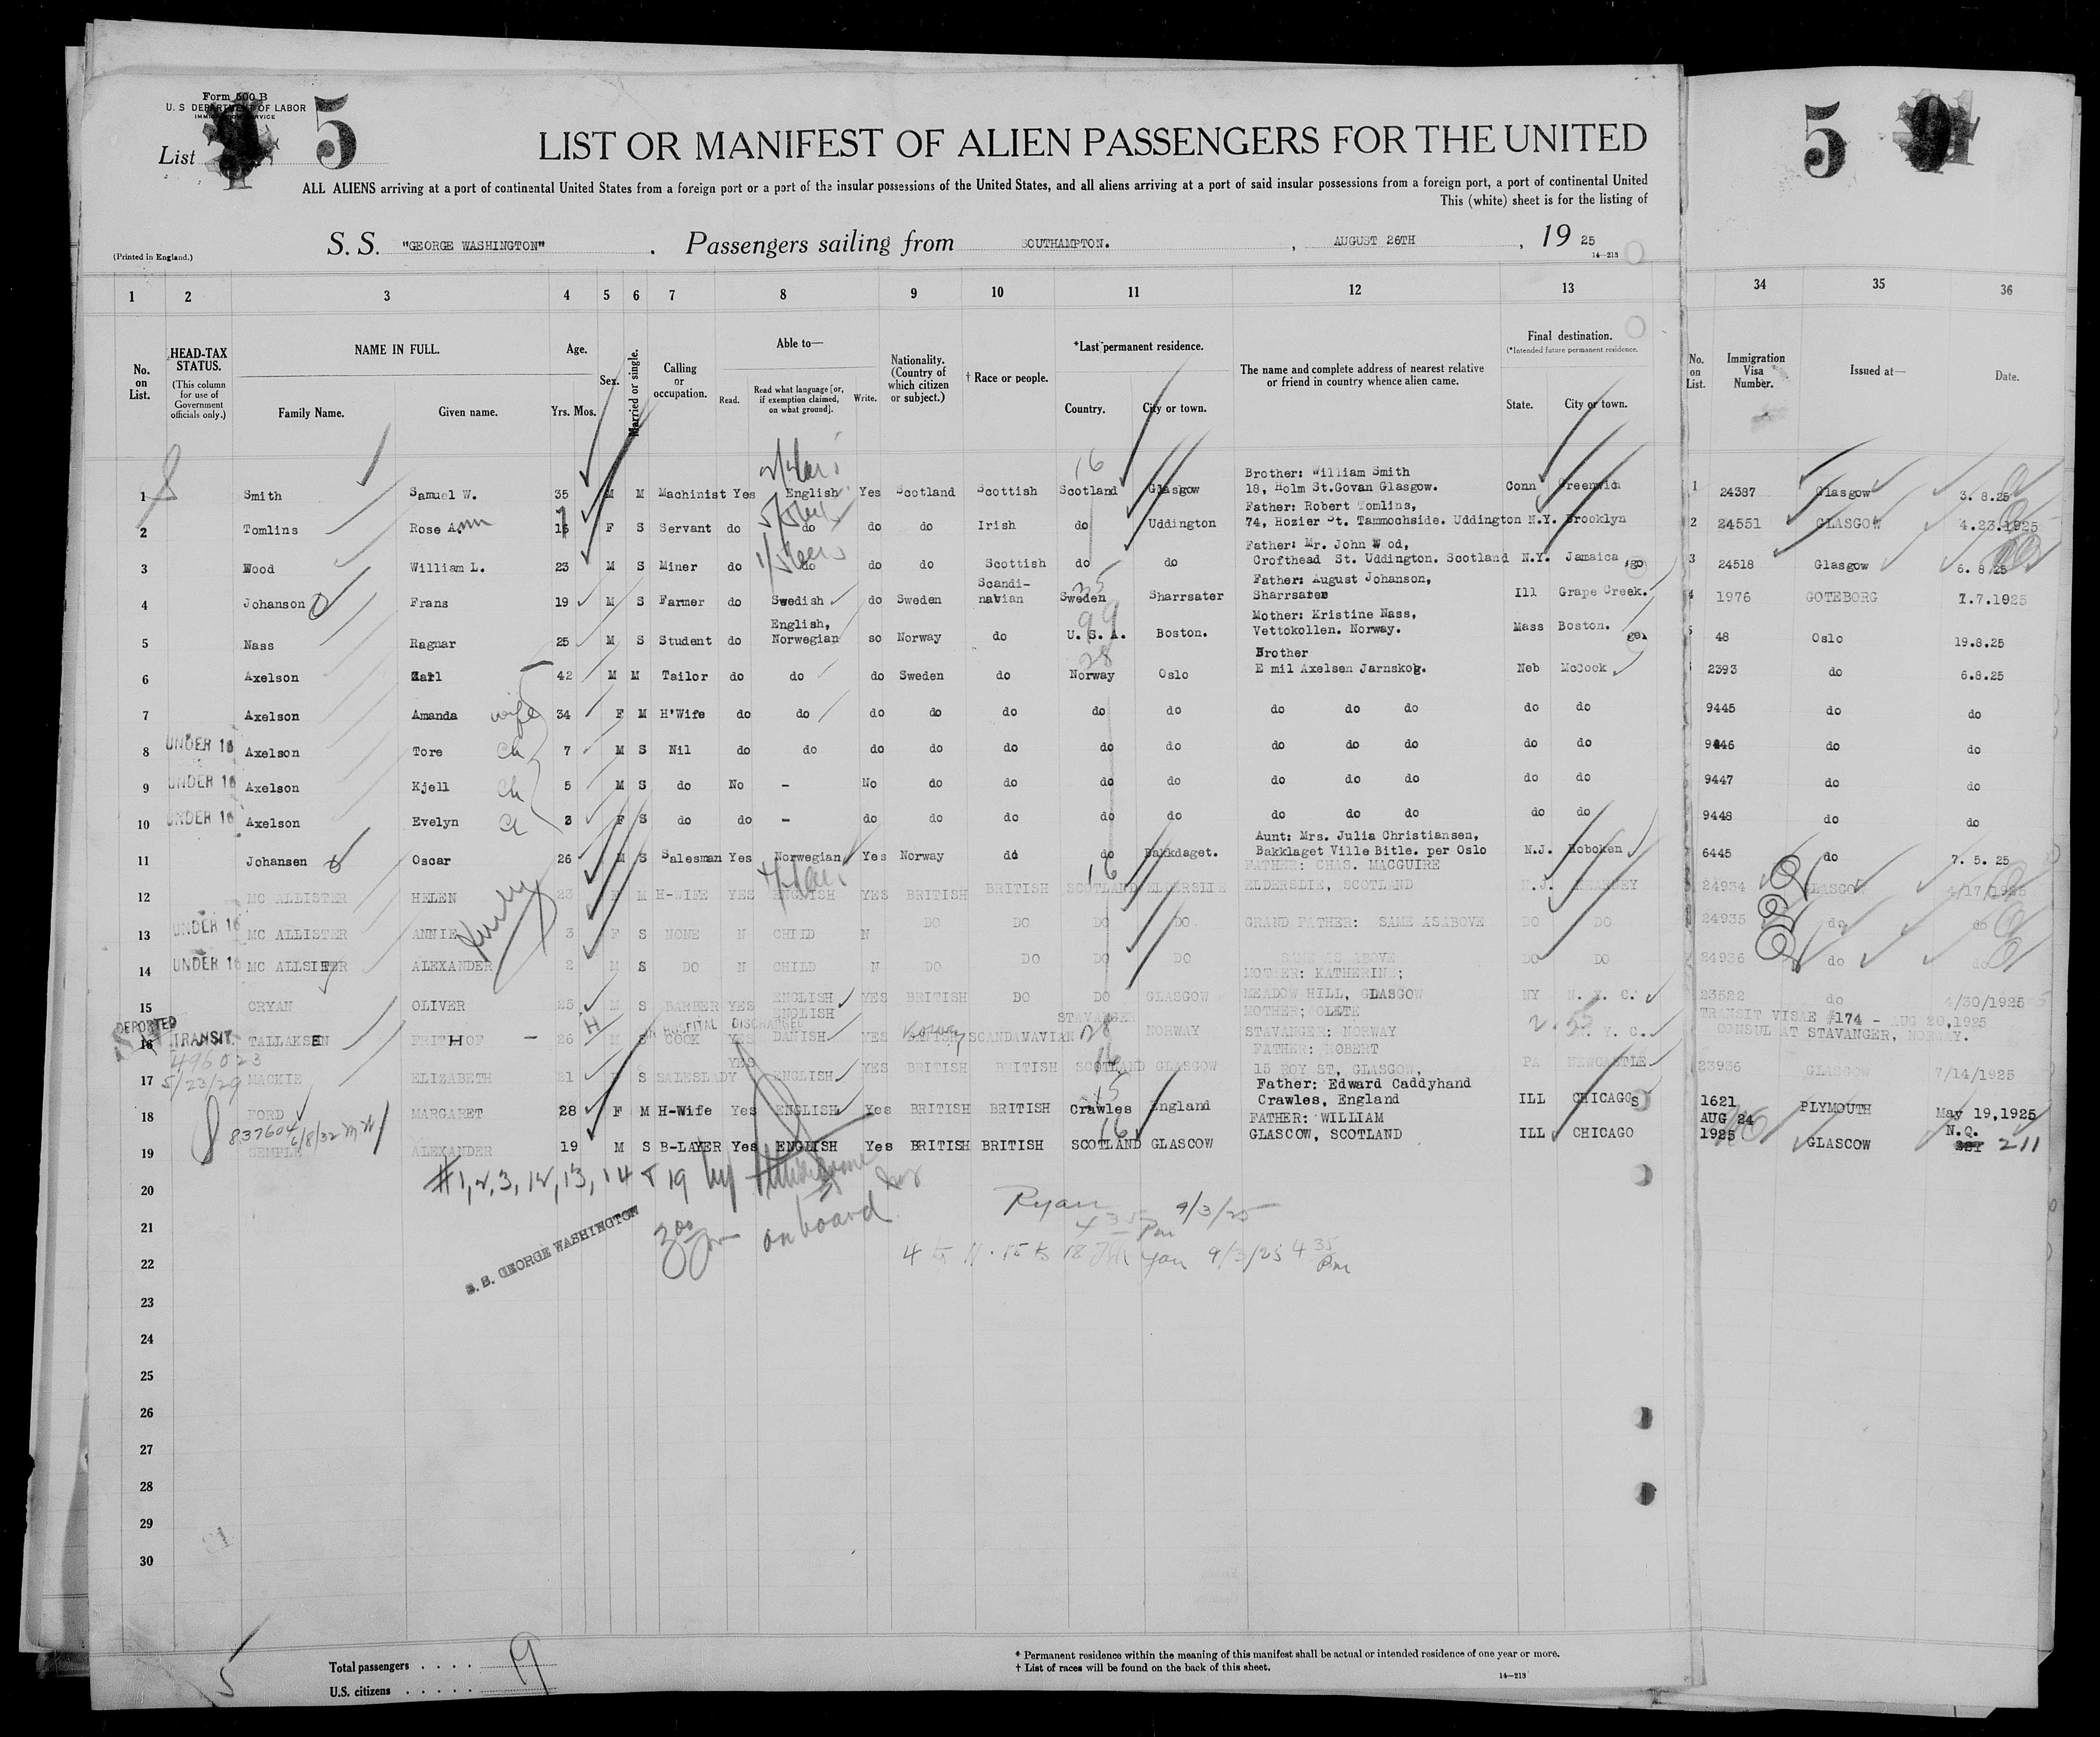 Form 500 B
U. S DEPARTMENT OF LABOR
IMMIGRATION SERVICE
List 5
5 9
LIST OR MANIFEST OF ALIEN PASSENGERS FOR THE UNITED
ALL ALIENS arriving at a port of continental United States from a foreign port or a port of the insular possessions of the United States, and all aliens arriving at a port of said insular possessions from a foreign port, a port of continental United
This (white) sheet is for the listing of
(Printed in England.)
S. S. "GEORGE WASHINGTON" . Passengers sailing from SOUTHAMPTON. , AUGUST 26TH , 19 25
14—213
1 2 3 4 5 6 7 8 9 10 11 12 13 34 35 36
No. on List.
HEAD-TAX STATUS.
(This column for use of Government officials only.)
NAME IN FULL.
Family Name. Given name.
Age.
Yrs. Mos.
Sex.
Married or single.
Calling or occupation.
Able to—
Read. Read what language [or, if exemption claimed, on what ground]. Write.
Nationality. (Country of which citizen or subject.)
† Race or people.
*Last permanent residence.
Country. City or town.
The name and complete address of nearest relative or friend in country whence alien came.
Final destination.
(*Intended future permanent residence.
State. City or town.
No. on List.
Immigration Visa Number.
Issued at—
Date.
16
Brother: William Smith
1 Smith Samuel W. 35 M M Machinist Yes English Yes Scotland Scottish Scotland Glasgow 18, Holm St.Govan Glasgow. Conn Greenwich 1 24387 Glasgow 3. 8.25
Father: Robert Tomlins,
2 Tomlins Rose Ann F S Servant do do do do Irish do Uddington 74, Hozier St. Tammochside. Uddington N.Y. Brooklyn 2 24551 GLASGOW 4.23.1925
Father: Mr. John W od,
3 Wood William L. 23 M S Miner do do do do Scottish do do Crofthead St. Uddington. Scotland N.Y. Jamaica 3 24518 Glasgow 6. 8.25
Father: August Johanson,
4 Johanson Frans 19 M S Farmer do Swedish do Sweden Scandi-navian Sweden Sharrsater Sharrsater Ill Grape Creek. 4 1976 GOTEBORG 7.7.1925
Mother: Kristine Nass,
5 Nass Ragnar 25 M S Student do English, Norwegian so Norway do U. S. A. Boston. Vettokollen. Norway. Mass Boston. 5 48 Oslo 19.8.25
28
Brother
6 Axelson Karl 42 M M Tailor do do do Sweden do Norway Oslo E mil Axelsen Jarnskog. Neb McCook 2393 do 6.8.25
7 Axelson Amanda wife 34 F M H'Wife do do do do do do do do do do do do 9445 do do
8 UNDER 16 Axelson Tore ch 7 M S Nil do do do do do do do do do do do do 9446 do do
9 UNDER 16 Axelson Kjell ch 5 M S do No - No do do do do do do do do do 9447 do do
10 UNDER 16 Axelson Evelyn ch 3 F S do do - do do do do do do do do do do 9448 do do
Aunt: Mrs. Julia Christiansen,
11 Johansen Oscar 26 M S Salesman Yes Norwegian Yes Norway do do Bakkdaget. Bakklaget Ville Bitle. per Oslo N.J. Hoboken 6445 do 7. 5. 25
FATHER: CHAS. MACGUIRE
12 MC ALLISTER HELEN 23 F M H-WIFE YES ENGLISH YES BRITISH BRITISH SCOTLAND ELDERSLIE ELDERSLIE, SCOTLAND N.J. KEARNEY 24934 GLASGOW 4/17/1925
13 UNDER 16 MC ALLISTER ANNIE 3 F S NONE N CHILD N DO DO DO DO GRAND FATHER: SAME ASABOVE DO DO 24935 do do
14 UNDER 16 MC ALLSITER ALEXANDER 2 M S DO N CHILD N DO DO DO DO SAME AS ABOVE DO DO 24936 do do
MOTHER: KATHERINE;
15 CRYAN OLIVER 25 M S BARBER YES ENGLISH YES BRITISH DO DO GLASGOW MEADOW HILL, GLASGOW NY N. Y. C. 23522 do 4/30/1925
DEPORTED
HOSPITAL DISCHARGED
ENGLISH STAVANGER MOTHER; OLETE TRANSIT VISAE #174 - AUG 20,1925
16 TRANSIT. TALLAKSEN FRITHOF 26 M S COOK YES DANISH YES SCANDANAVIAN 28 NORWAY STAVANGER: NORWAY N. Y. C. CONSUL AT STAVANGER, NORWAY.
496023
5/23/29
FATHER: ROBERT
17 MACKIE ELIZABETH 21 S SALESLADY YES ENGLISH YES BRITISH BRITISH SCOTLAND GLASGOW 15 ROY ST, GLASGOW, PA NEWCASTLE 23936 GLASGOW 7/14/1925
Father: Edward Caddyhand
18 FORD MARGARET 28 F M H-Wife Yes ENGLISH Yes BRITISH BRITISH Crawles England Crawles, England ILL CHICAGO 1621 PLYMOUTH May 19,1925
837604 6/8/32
FATHER: WILLIAM AUG 24 N.Q.
19 SEMPLE ALEXANDER 19 M S B-LAYER Yes ENGLISH Yes BRITISH BRITISH SCOTLAND GLASCOW GLASCOW, SCOTLAND ILL CHICAGO 1925 GLASCOW 211
20
#1,2,3,12,13,14 & 19 by
21
on board
Ryan 9/3/25
4 35 Pm
S. S. GEORGE WASHINGTON
22
4 to 11. 15 to 18 Ryan 9/3/25 4 35 Pm
23
24
25
26
27
28
29
30
Total passengers . . . . 19
U.S. citizens . . . . .
* Permanent residence within the meaning of this manifest shall be actual or intended residence of one year or more.
† List of races will be found on the back of this sheet.
14—213
5